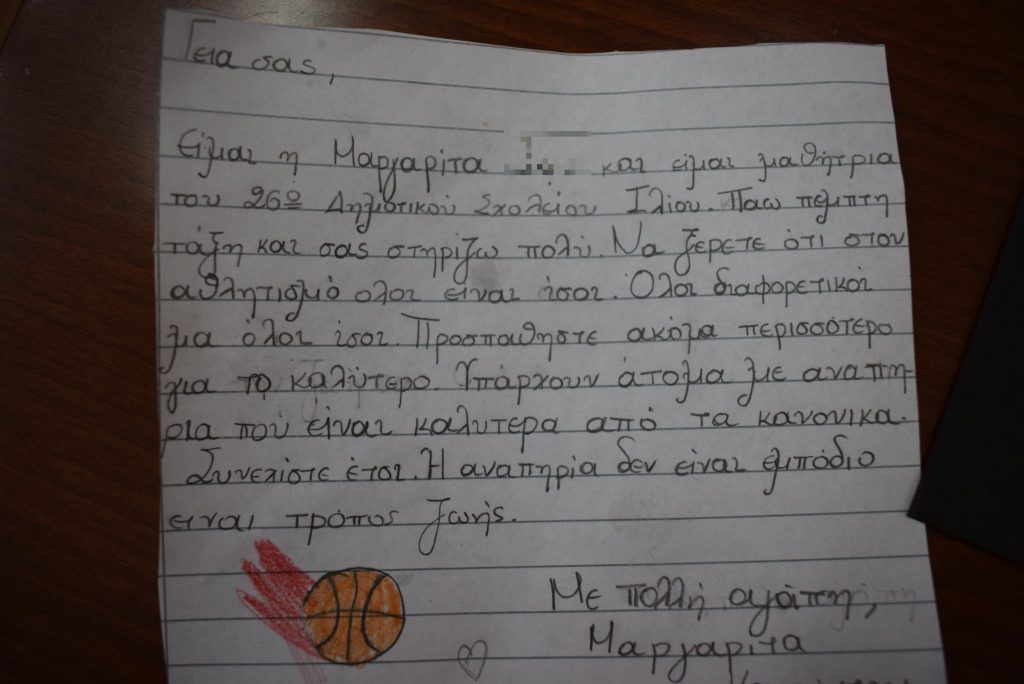 Γεια σας,
Είμαι η Μαργαρίτα και είμαι μαθήτρια
του 26ο Δημοτικού Σχολείου Ιλίου. Παω πέμπτη
τάξη και σας στηρίζω πολύ. Να ξέρετε ότι στον
αθλητισμό ολοι ειναι ίσοι. Όλοι διαφορετικοί
μα όλοι ίσοι. Προσπαθηστε ακόμα περισσότερο
για το καλύτερο. Υπάρχουν άτομα με αναπη-
ρία που είναι καλυτερα από τα κανονικα.
Συνεχίστε έτσι. Η αναπηρία δεν είναι εμπόδιο
ειναι τρόπος ζωής.
Με πολλή αγάπη,
Μαργαρίτα